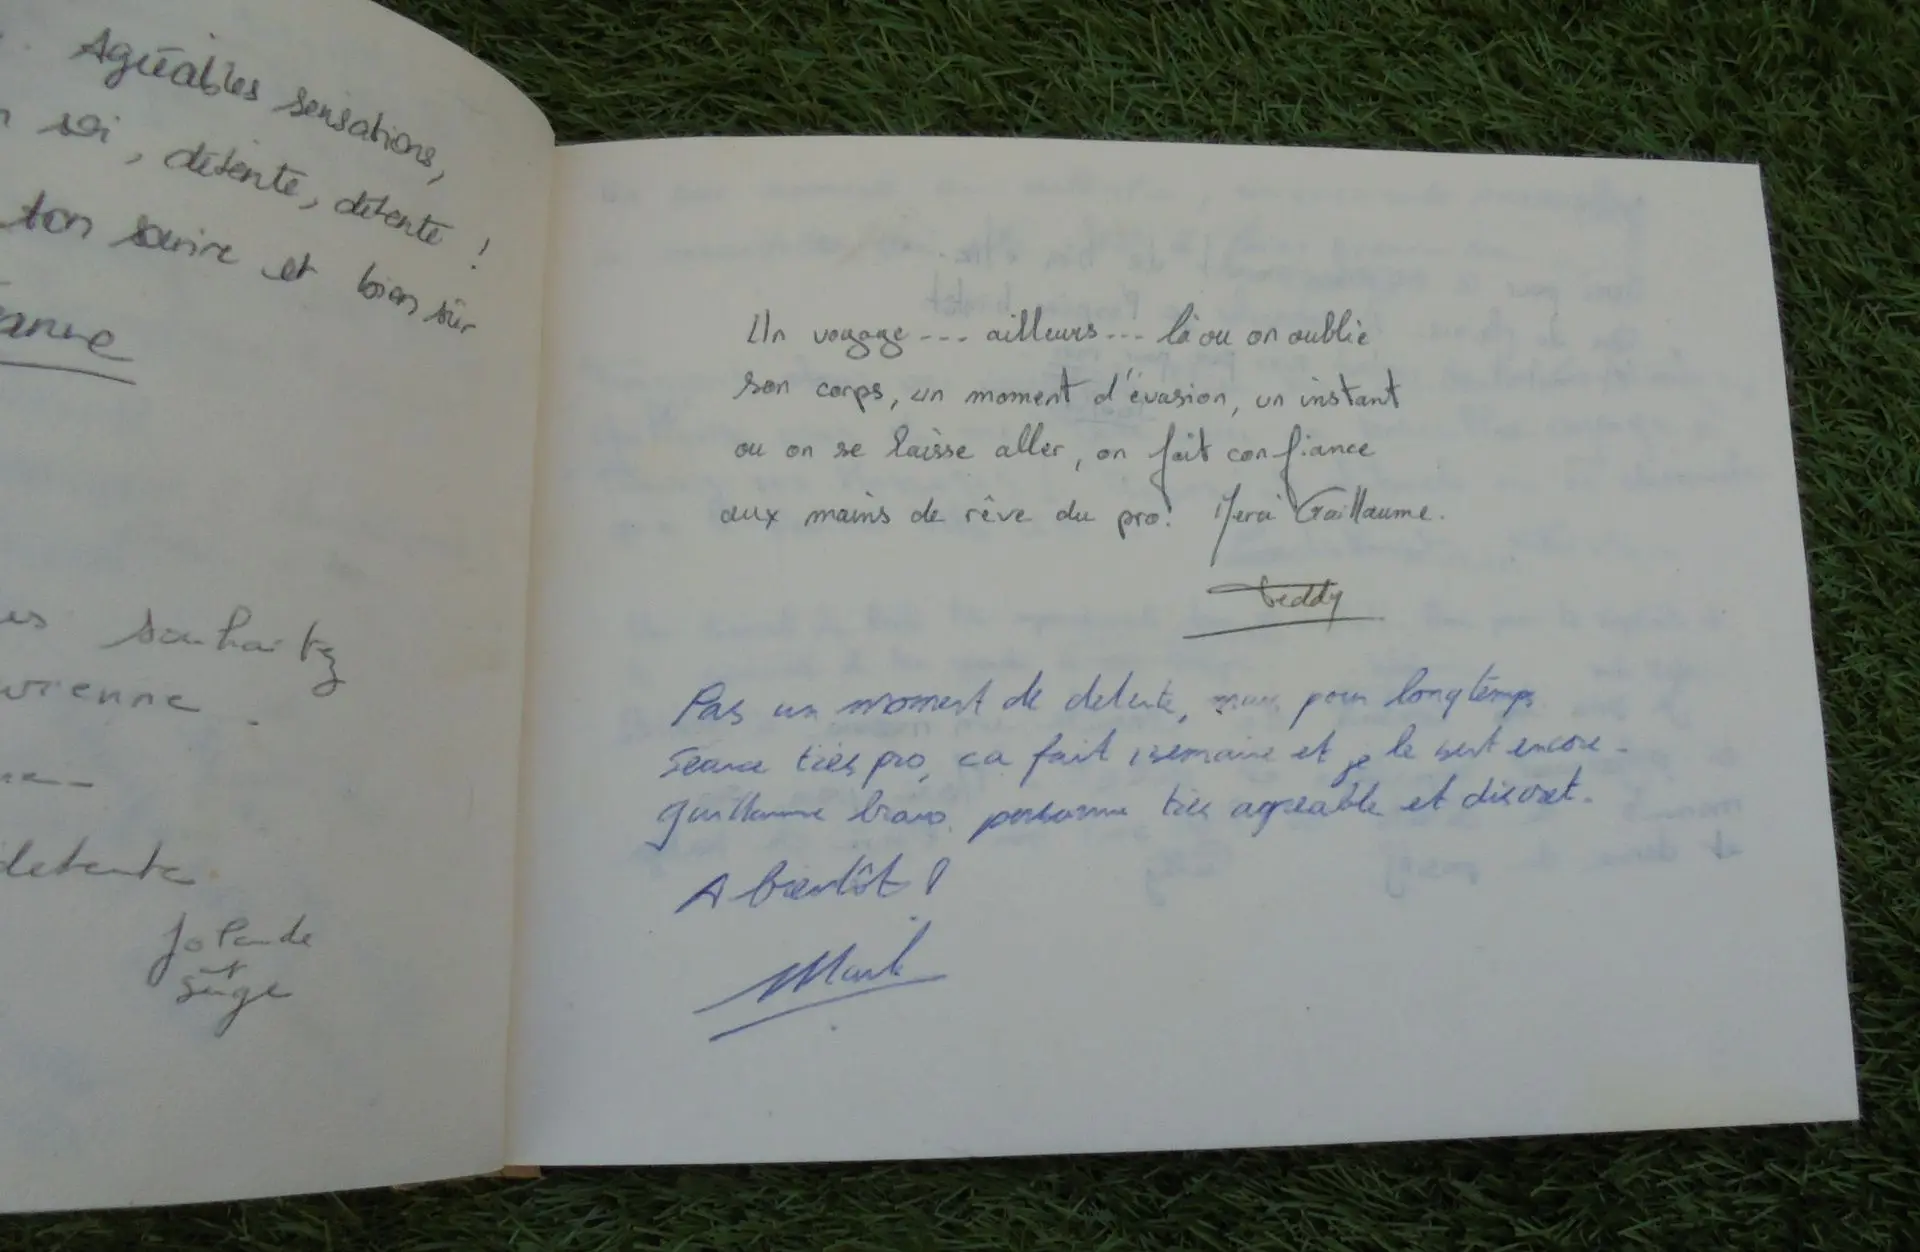 Agréables sensations,
soi, détente, détente !
ton sourire et bien sûr
souhaitez
vienne.
detente
Jolande
et
Serge
Un voyage --- ailleurs --- là ou on oublie
son corps, un moment d'évasion, un instant
ou on se laisse aller, on fait confiance
aux mains de rêve du pro! Merci Guillaume.
Teddy
Pas un moment de detente, mais pour longtemps
Seance très pro, ca fait 1 semaine et je le sent encore.
Guillaume bravo, personne très agreable et discret.
A bientôt !
Mark